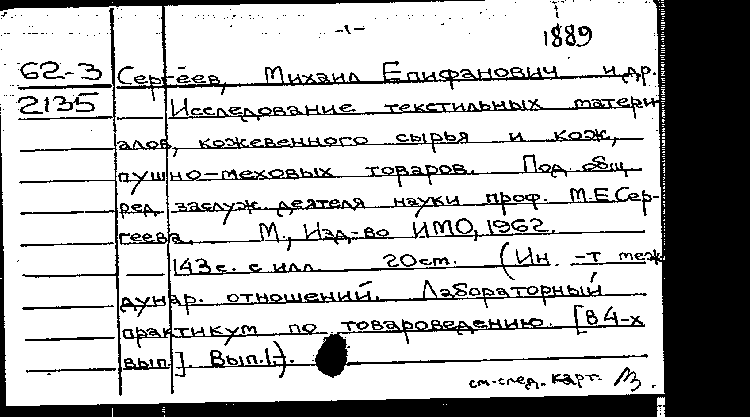 -1-
1889
62-3 Сергеев, Михаил Епифанович и др.
2135 Исследование текстильных матери
алов, кожевенного сырья и кож,
пушно-меховых товаров. Под общ.
ред. заслуж. деятеля науки проф. М.Е.Сер-
геева. М., Изд-во ИМО, 1962.
143 с. с илл. 20 см. (Ин-т меж
дунар. отношений. Лабораторный
практикум по товароведению. [В 4-х
вып.]. Вып.1.).
см.след. карт.